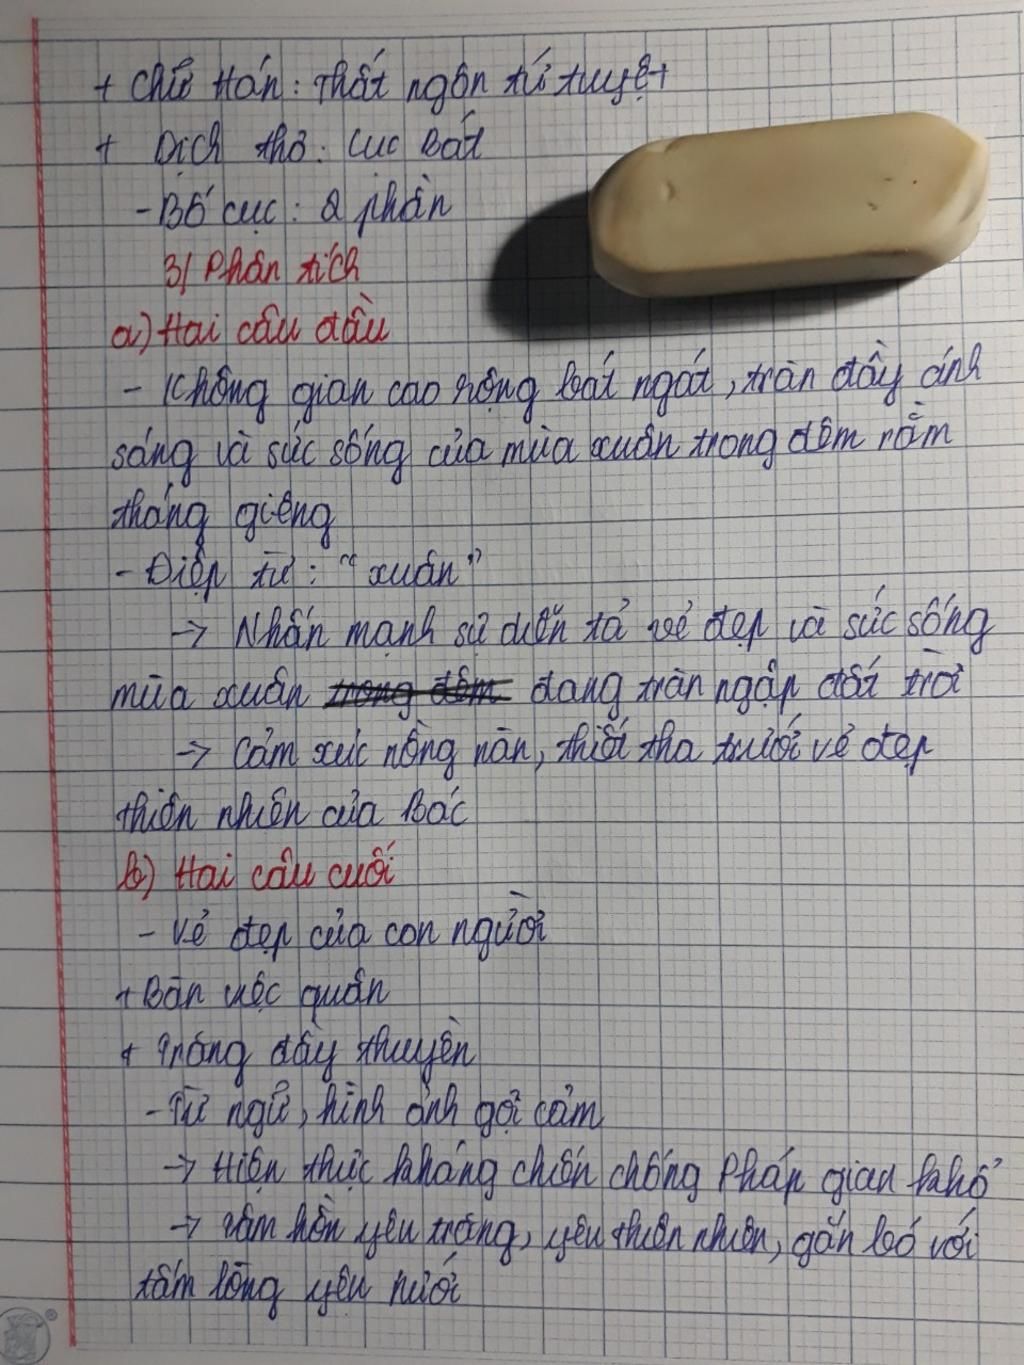 + Chữ Hán: Thất ngôn tứ tuyệt
+ Dịch thơ: Lục bát
- Bố cục: 2 phần
3/ Phân tích
a) Hai câu đầu
- Không gian cao rộng bát ngát, tràn đầy ánh
sáng và sức sống của mùa xuân trong đêm rằm
tháng giêng
- Điệp từ: "xuân"
→ Nhấn mạnh sự diễn tả vẻ đẹp và sức sống
mùa xuân trong đêm đang tràn ngập đất trời
→ Cảm xúc nồng nàn, thiết tha trước vẻ đẹp
thiên nhiên của Bác
b) Hai câu cuối
- Vẻ đẹp của con người
+ Bàn việc quân
+ Trăng đầy thuyền
- Từ ngữ, hình ảnh gợi cảm
→ Hiện thực kháng chiến chống Pháp gian khổ
→ Tâm hồn yêu trăng, yêu thiên nhiên, gắn bó với
tấm lòng yêu nước